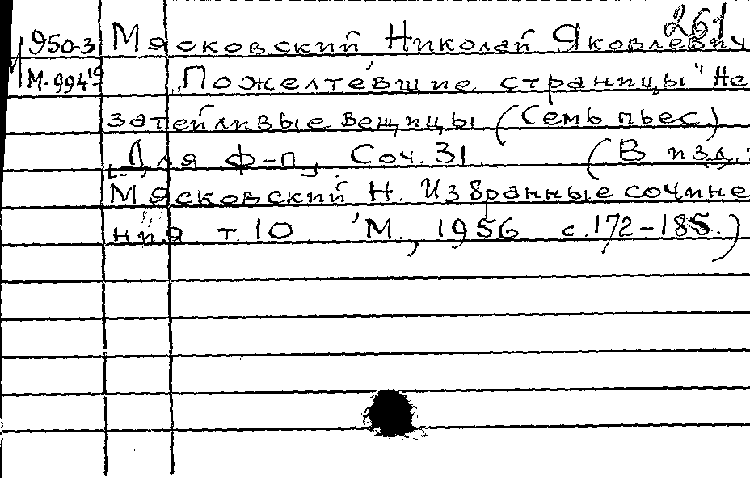 261
950-3 Мясковский Николай Яковлевич
М-994¹⁹ Пожелтевшие страницы" Не
затейливые вещицы (Семь пьес)
[Для ф-п] Соч. 31 (В изд.:
Мясковский Н. Избранные сочине
ния т. 10 М., 1956 с. 172-185.)